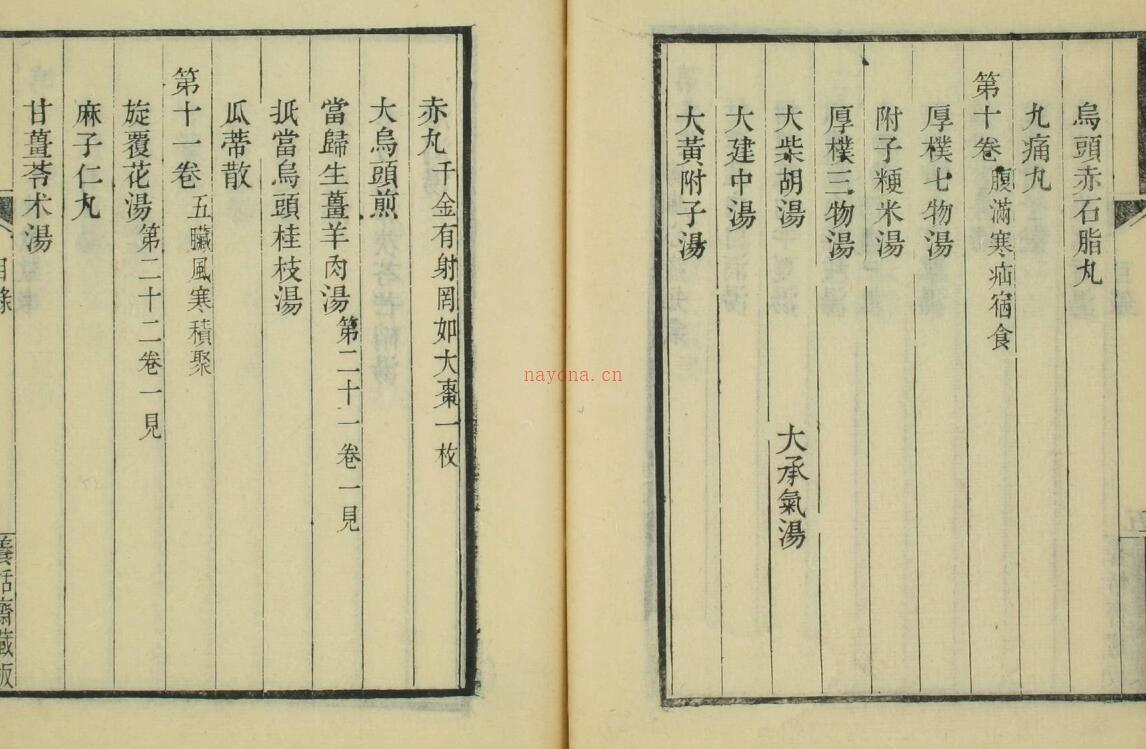 烏頭赤石脂丸
九痛丸
第十卷 腹滿寒疝宿食
厚樸七物湯
附子粳米湯
厚樸三物湯
大柴胡湯 大承氣湯
大建中湯
大黃附子湯
赤丸 千金有射罔如大棗一枚
大烏頭煎
當歸生薑羊肉湯 第二十一卷一見
扺當烏頭桂枝湯
瓜蒂散
第十一卷 五臟風寒積聚
旋覆花湯 第二十二卷一見
麻子仁丸
甘薑苓术湯
目錄
養恬齋藏板
nayona.cn